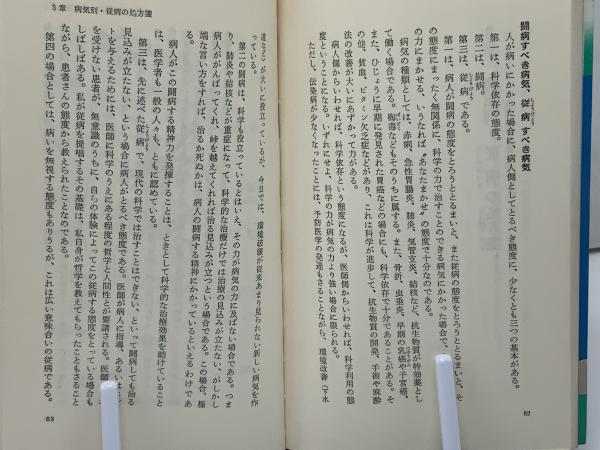 闘病すべき病気、従病すべき病気
人が病いにかかった場合に、病人側としてとるべき態度に、少なくとも三つの基本がある。
第一は、科学依存の態度。
第二は、闘病。
第三は、従病である。
第一は、病人が闘病の態度をとろうととるまいと、また従病の態度をとろうととるまいと、そ
の態度にまったく無関係に、科学の力で治すことのできる病気にかかった場合で、
の力にまかせる、いうなれば〝あなたまかせ〟の態度で十分なのである。
病気の種類としては、赤痢、急性胃腸炎、肺炎、気管支炎、結核など、抗生物質が特効薬とし
て働く場合である。梅毒などもそのうちに属する。また、骨折、虫垂炎、早期の乳癌や子宮癌、
また、ひじょうに早期に発見された胃癌などの場合にも、科学依存で十分であることがある。そ
の他、貧血、ビタミン欠乏症などがあり、これは科学が進歩して、抗生物質の開発、手術や麻酔
法の改善が大いにあずかって力がある。
病人側からいわせれば、科学依存という態度になるが、医師側からいわせれば、科学利用の態
度ということになる。いずれにせよ、科学の力が病気の力より強い場合に限られる。
ただし、伝染病が少なくなったことには、予防医学の発達もさることながら、環境改善（下水
62
道など）が大いに役立っているが、今日では、環境破壊が従来あまり見られない新しい病気を作
っている。
第二の闘病は、科学も役立っているとはいえ、その力が病気の力に及ばない場合である。つま
り、肺炎や結核などが重症になって、科学的な治療だけでは治療の見込みが立たない、がしかし
病人ががんばってくれ、峠を越えてくれれば治る見込みが立つという場合である。この場合、極
端な言い方をすれば、治るか死ぬかは、病人の闘病する精神にかかっているといえるわけであ
る。
病人がこの闘病する精神力を発揮することは、ときとして科学的な治療効果を助けていること
は、医学者も一般の人々も、ともに認めている。
第三は、先に述べた従病で、現代の科学では治すことはできない、といって闘病しても治る
見込みが立たない、という場合に病人がとるべき態度である。医師が病人に指導、あるいは
トを与えるためには、医師に科学のうえにある程度の哲学と人間性とが要請される。医師
を受けない患者が、無意識のうちに、自らの体験によってこの従病する態度をとっている場合も
しばしばある。私が従病を提唱するその基礎は、私自身が哲学を教えてもらったこともさること
ながら、患者さんの態度から教えられたことなのである。
第四の場合としては、病いを無視する態度もありうるが、これは広い意味合いの従病である。
3章 病気別・従病の処方箋
63